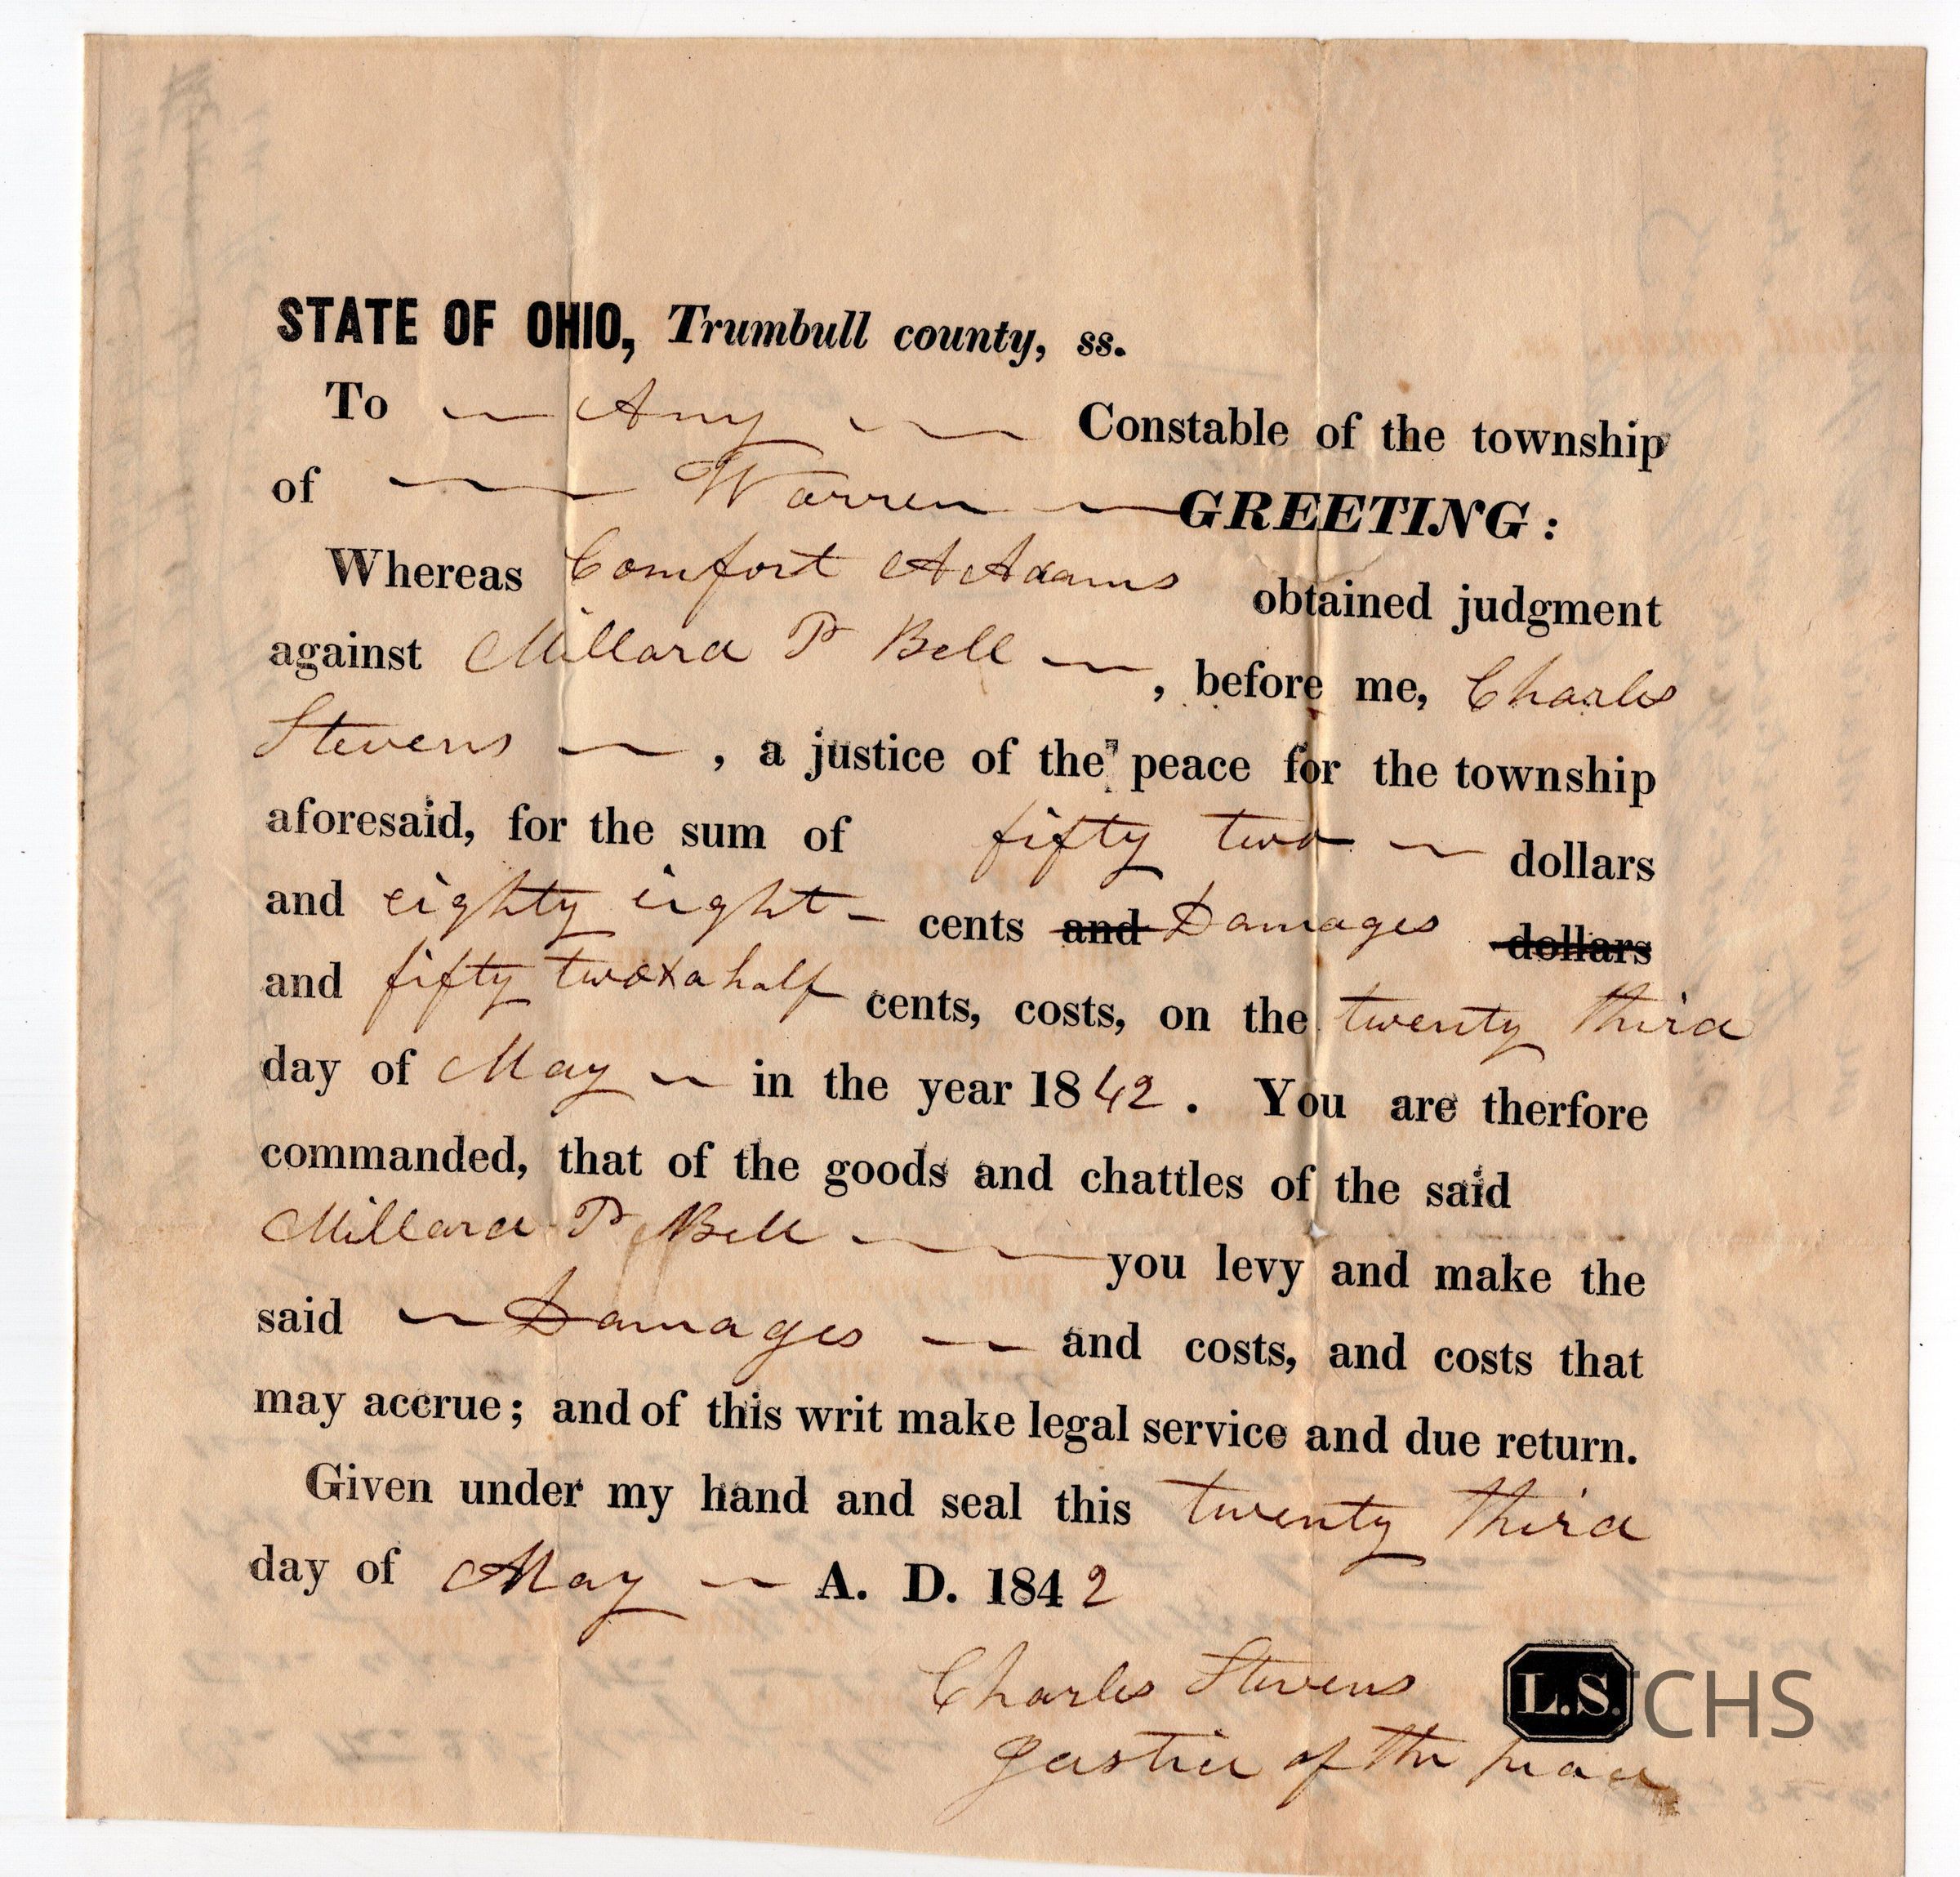 STATE OF OHIO, Trumbull county, ss.
To Any Constable of the township
of Warren GREETING:
Whereas Comfort A Adams obtained judgment
against Millard P Bell, before me, Charles
Stevens, a justice of the peace for the township
aforesaid, for the sum of fifty two dollars
and eighty eight cents and Damages dollars
and fifty two & a half cents, costs, on the twenty third
day of May in the year 1842. You are therfore
commanded, that of the goods and chattles of the said
Millard P Bell you levy and make the
said Damages and costs, and costs that
may accrue; and of this writ make legal service and due return.
Given under my hand and seal this twenty third
day of May A. D. 1842
Charles Stevens L.S.
CHS
Justice of the peace